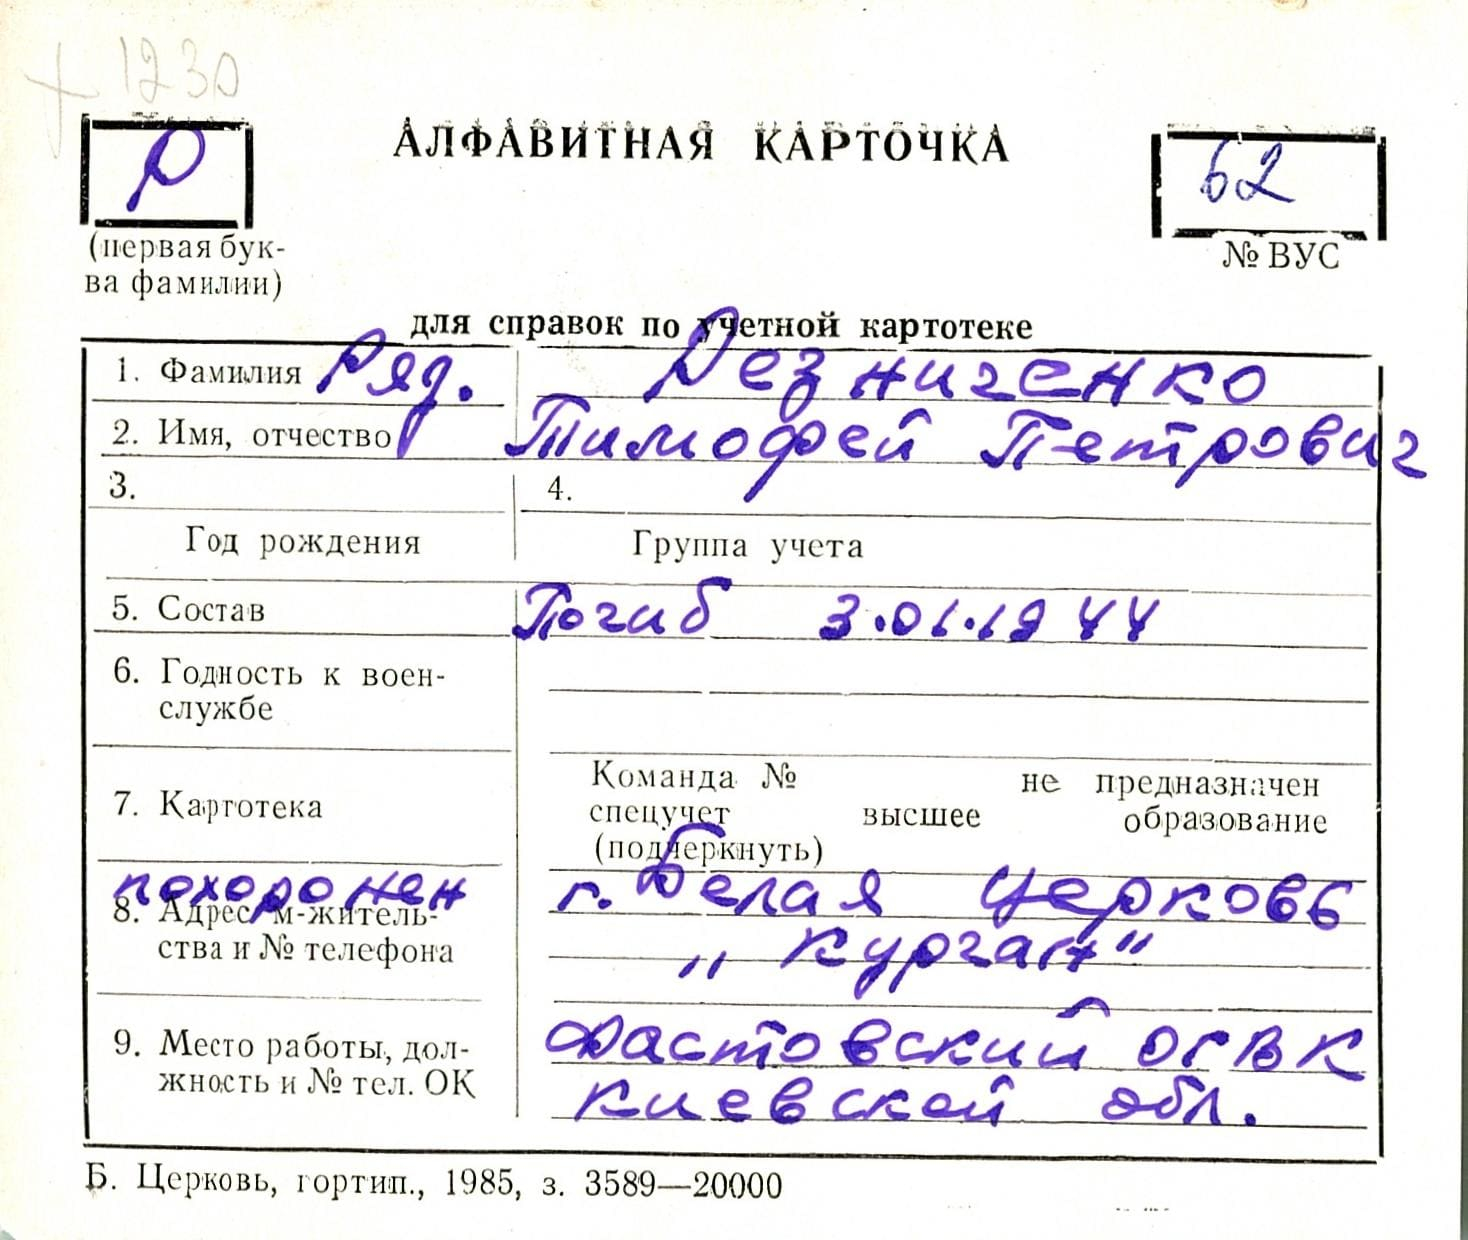 + 1230
Р
АЛФАВИТНАЯ КАРТОЧКА
62
(первая бук-
ва фамилии)
№ ВУС
для справок по учетной картотеке
1. Фамилия Ряд. Резниченко
2. Имя, отчество Тимофей Петрович
3. 4.
Год рождения Группа учета
5. Состав Погиб 3.01.1944
6. Годность к воен-
службе
7. Картотека
Команда № не предназначен
спецучет высшее образование
(подчеркнуть)
похоронен г. Белая Церковь
8. Адрес м-житель-
ства и № телефона
„Курган"
9. Место работы, дол-
жность и № тел. ОК
Фастовский ОГВК
Киевской обл.
Б. Церковь, гортип., 1985, з. 3589—20000